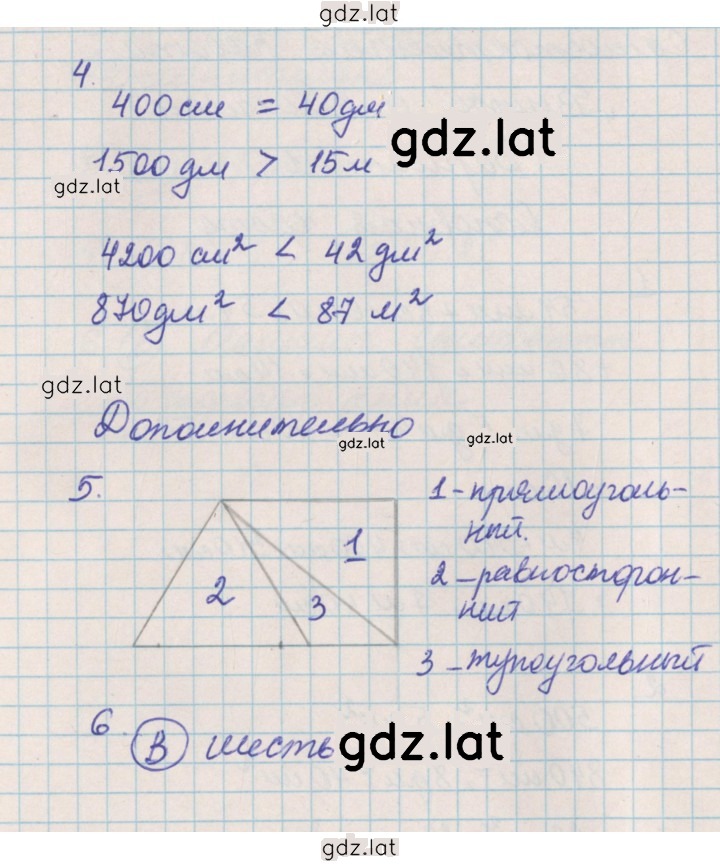 gdz.lat
4.
400 см = 40 дм
gdz.lat
1500 дм > 15 м
gdz.lat
4200 см² < 42 дм²
870 дм² < 87 м²
gdz.lat
Дополнительно
gdz.lat
gdz.lat
5.
1
2
3
1 - прямоуголь-
ный.
2 - равносторон-
ний
3 - тупоугольный
6. В шесть
gdz.lat
gdz.lat